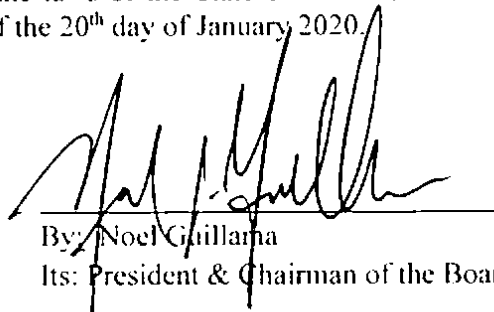 f the 20th day of January 2020.
By: Noel Guillama
Its: President & Chairman of the Boar